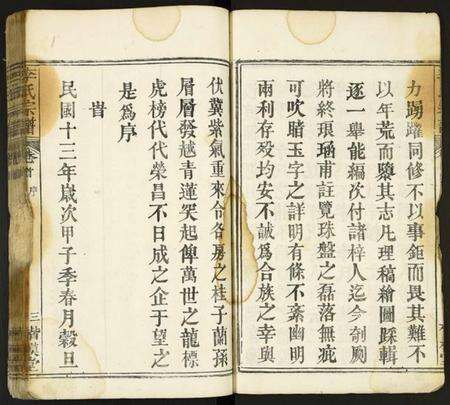 力踴躍同修不以事鉅而畏其難不
以年荒而隳其志凡理稿繪圖踩輯
逐一舉能編次付諸梓人迄今剞劂
將終琅瑀甫註覽珠盤之磊落無疵
可吹瞻玉字之詳明有條不紊幽明
兩利存歿均安不誠為合族之幸與
伏冀紫氣重來令各房之桂子蘭孫
層層發越青蓮突起俾萬世之龍標
虎榜代代榮昌不日成之企于望之
是為序
旹
民國十三年歲次甲子季春月穀旦
李氏宗譜
卷首
序
三